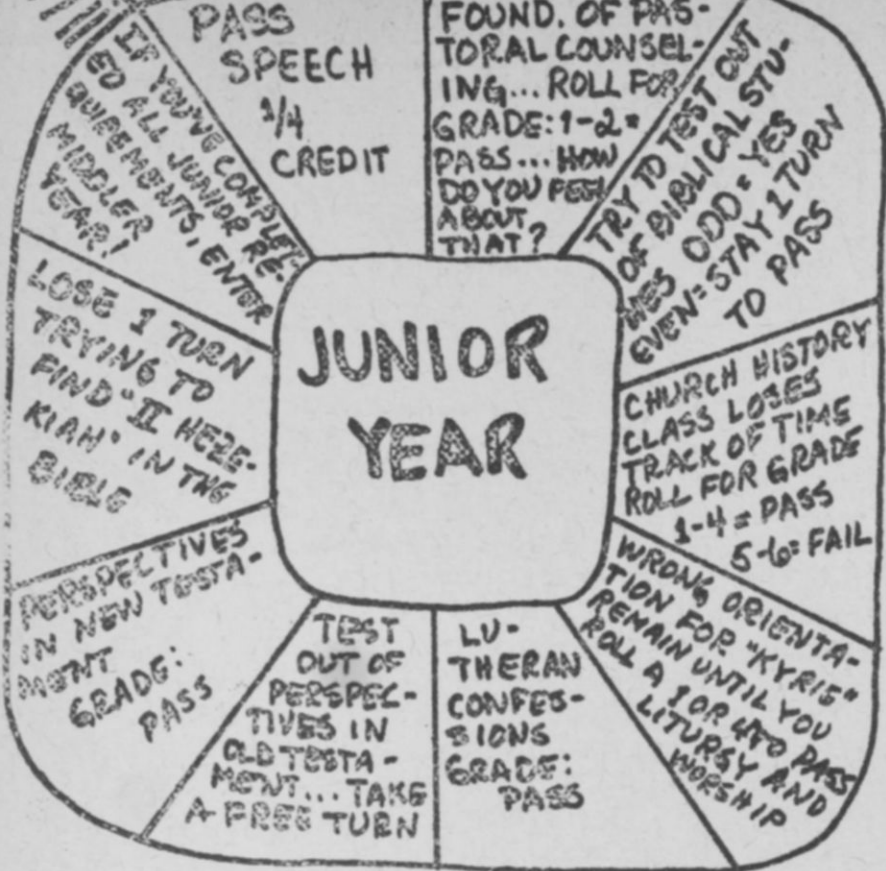 JUNIOR
YEAR
PASS
SPEECH
1/4
CREDIT
FOUND. OF PAS-
TORAL COUNSEL-
ING... ROLL FOR
GRADE: 1-2=
PASS... HOW
DO YOU FEEL
ABOUT
THAT?
TRY TO TEST OUT
OF BIBLICAL STU-
DIES ODD = YES
EVEN = STAY 1 TURN
TO PASS
CHURCH HISTORY
CLASS LOSES
TRACK OF TIME
ROLL FOR GRADE
1-4 = PASS
5-6 = FAIL
WRONG ORIENTA-
TION FOR "KYRIE"
REMAIN UNTIL YOU
ROLL A 1 OR 4 TO PASS
LITURGY AND
WORSHIP
LU-
THERAN
CONFES-
SIONS
GRADE:
PASS
TEST
OUT OF
PERSPEC-
TIVES IN
OLD TESTA-
MENT... TAKE
A FREE TURN
PERSPECTIVES
IN NEW TESTA-
MENT
GRADE:
PASS
LOSE 1 TURN
TRYING TO
FIND "II HEZE-
KIAH" IN THE
BIBLE
IF YOU'VE COMPLET-
ED ALL JUNIOR RE-
QUIREMENTS, ENTER
MIDDLER
YEAR!